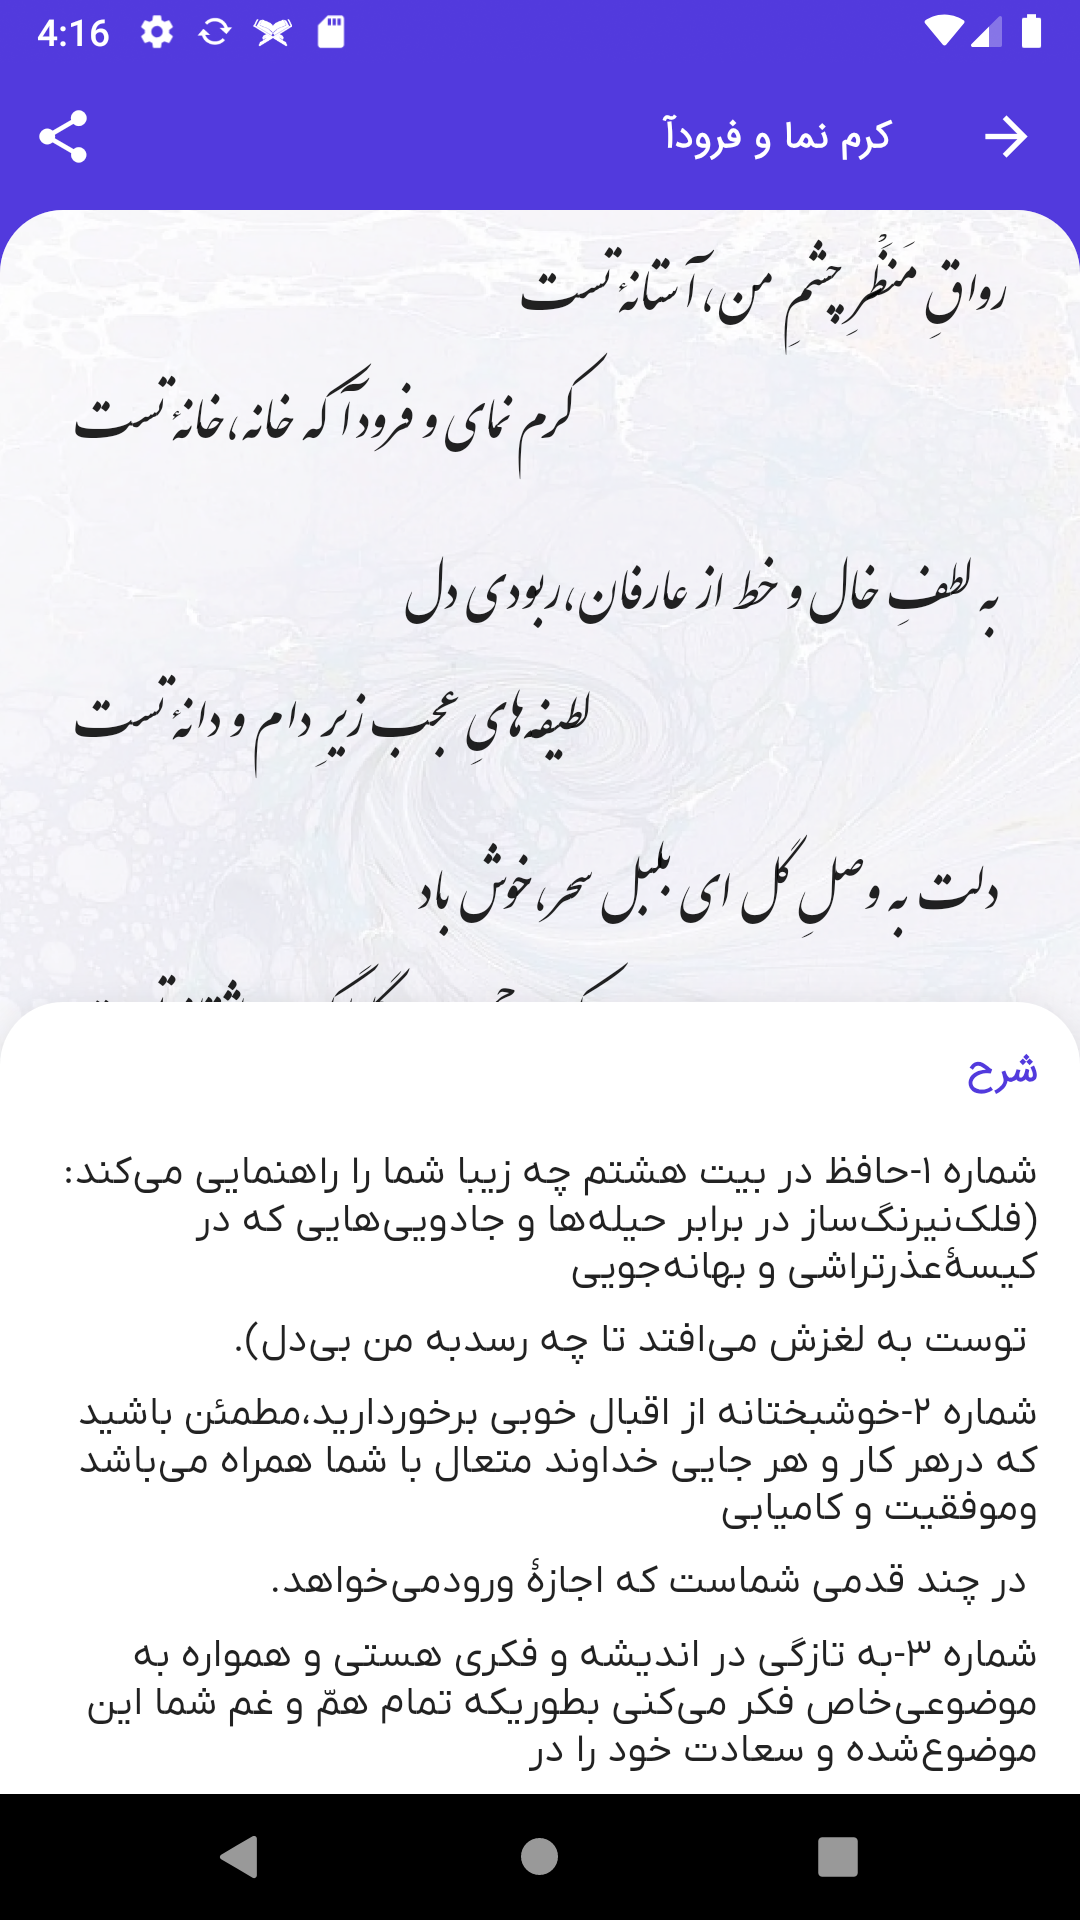 4:16
کرم نما و فرودآ
رواقِ مَنظَرِ چشمِ من، آستانهٔ تست
کرم نمای و فرود آ که خانه، خانهٔ تست
به لطفِ خال و خط از عارفان، ربودی دل
لطیفه‌هایِ عجب زیرِ دام و دانهٔ تست
دلت به وصلِ گل ای بلبل سحر، خوش باد
شرح
شماره ۱-حافظ در بیت هشتم چه زیبا شما را راهنمایی می‌کند:
(فلک‌نیرنگ‌ساز در برابر حیله‌ها و جادویی‌هایی که در
کیسهٔ‌عذرتراشی و بهانه‌جویی
توست به لغزش می‌افتد تا چه رسدبه من بی‌دل).
شماره ۲-خوشبختانه از اقبال خوبی برخوردارید،مطمئن باشید
که درهر کار و هر جایی خداوند متعال با شما همراه می‌باشد
وموفقیت و کامیابی
در چند قدمی شماست که اجازهٔ ورودمی‌خواهد.
شماره ۳-به تازگی در اندیشه و فکری هستی و همواره به
موضوعی‌خاص فکر می‌کنی بطوریکه تمام همّ و غم شما این
موضوع‌شده و سعادت خود را در